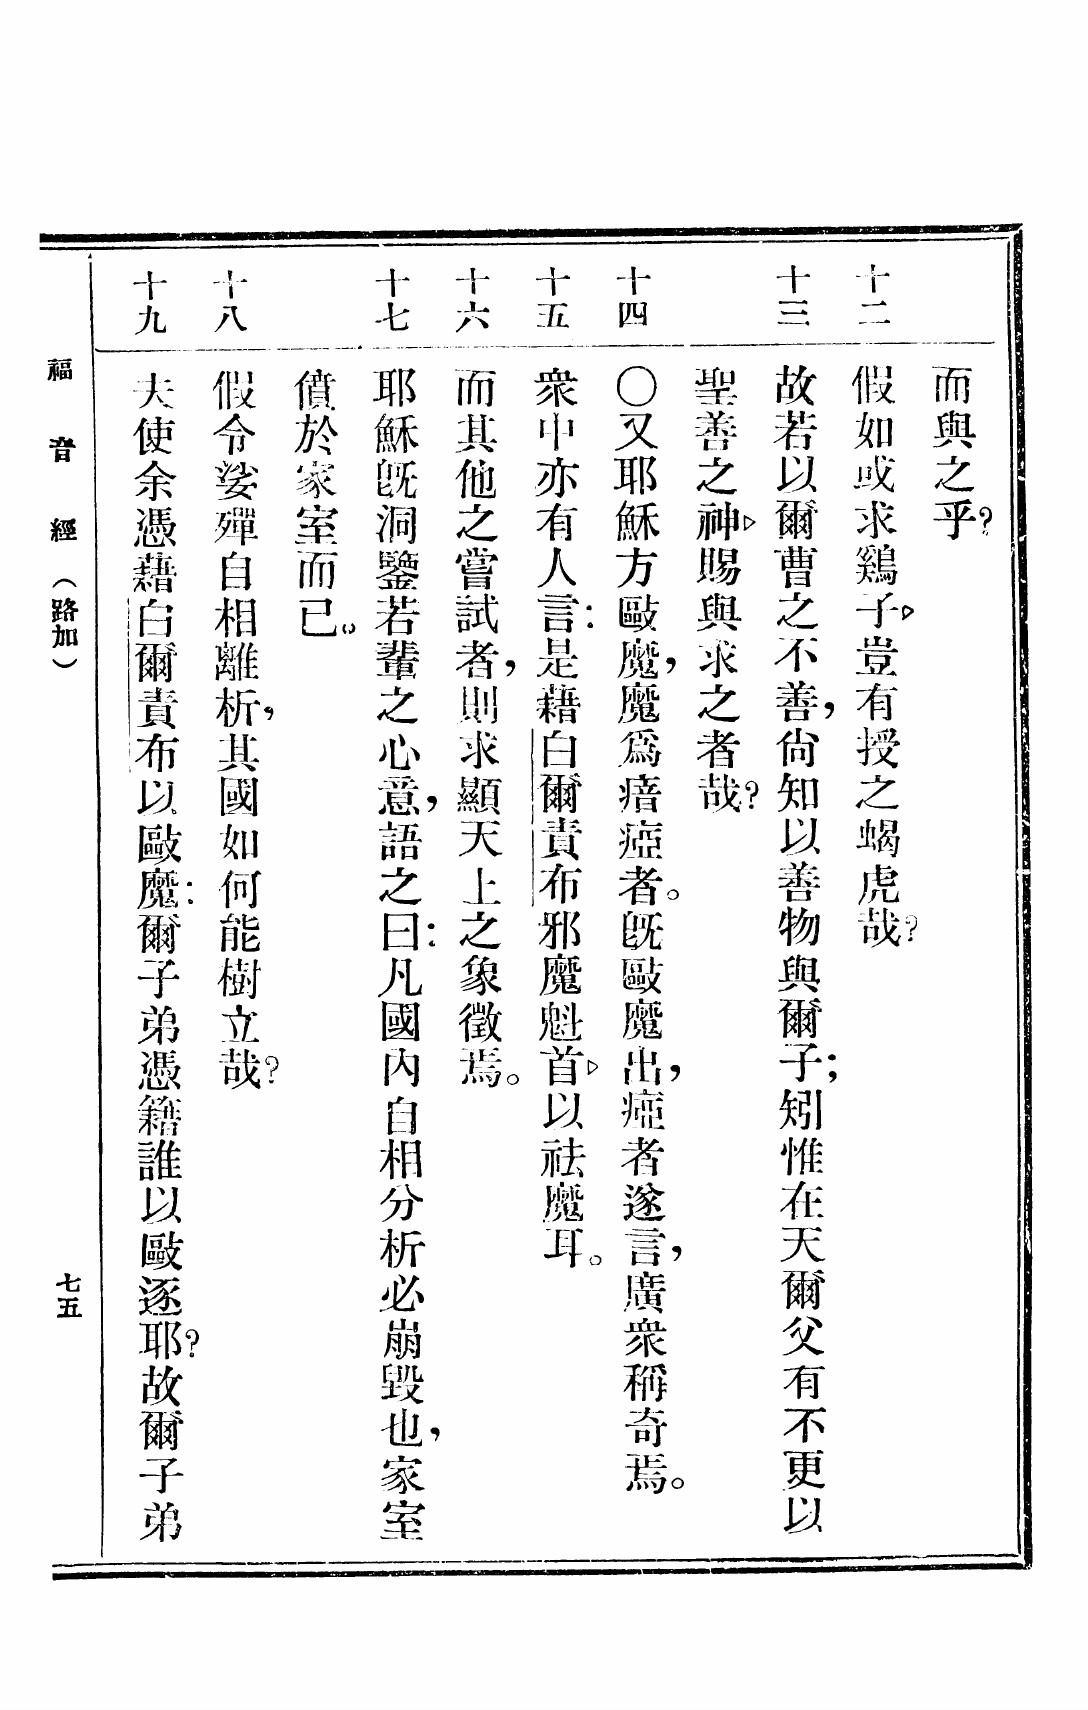 而與之乎?
十二 假如或求鷄子▹豈有授之蝎虎哉?
十三 故若以爾曹之不善,尙知以善物與爾子;矧惟在天爾父有不更以
聖善之神▹賜與求之者哉?
十四 〇又耶穌方敺魔,魔爲瘖瘂者。旣敺魔出,瘂者遂言,廣衆稱奇焉。
十五 衆中亦有人言:是藉白爾責布邪魔魁首▹以祛魔耳。
十六 而其他之嘗試者,則求顯天上之象徵焉。
十七 耶穌旣洞鑒若輩之心意,語之曰:凡國內自相分析必崩毀也,家室
僨於家室而已。
十八 假令娑殫自相離析,其國如何能樹立哉?
十九 夫使余憑藉白爾責布以敺魔:爾子弟憑籍誰以敺逐耶?故爾子弟
福音經(路加)
七五